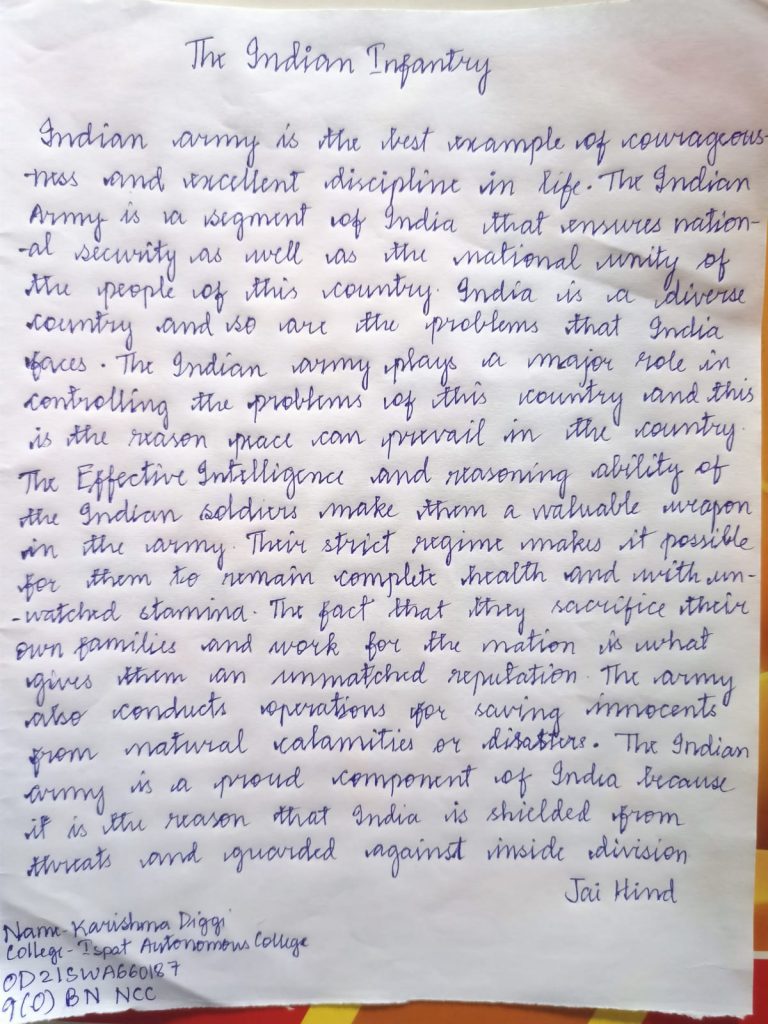 The Indian Infantry
Indian army is the best example of courageous-
-ness and excellent discipline in life. The Indian
Army is a segment of India that ensures nation-
-al security as well as the national unity of
the people of this country. India is a diverse
country and so are the problems that India
faces. The Indian army plays a major role in
controlling the problems of this country and this
is the reason peace can prevail in the country.
The Effective Intelligence and reasoning ability of
the Indian soldiers make them a valuable weapon
in the army. Their strict regime makes it possible
for them to remain complete health and with un-
-watched stamina. The fact that they sacrifice their
own families and work for the nation is what
gives them an unmatched reputation. The army
also conducts operations for saving innocents
from natural calamities or disasters. The Indian
army is a proud component of India because
it is the reason that India is shielded from
threats and guarded against inside division
Jai Hind
Name- Karishma Diggi
College- Ispat Autonomous College
OD21SWA660187
9(O) BN NCC